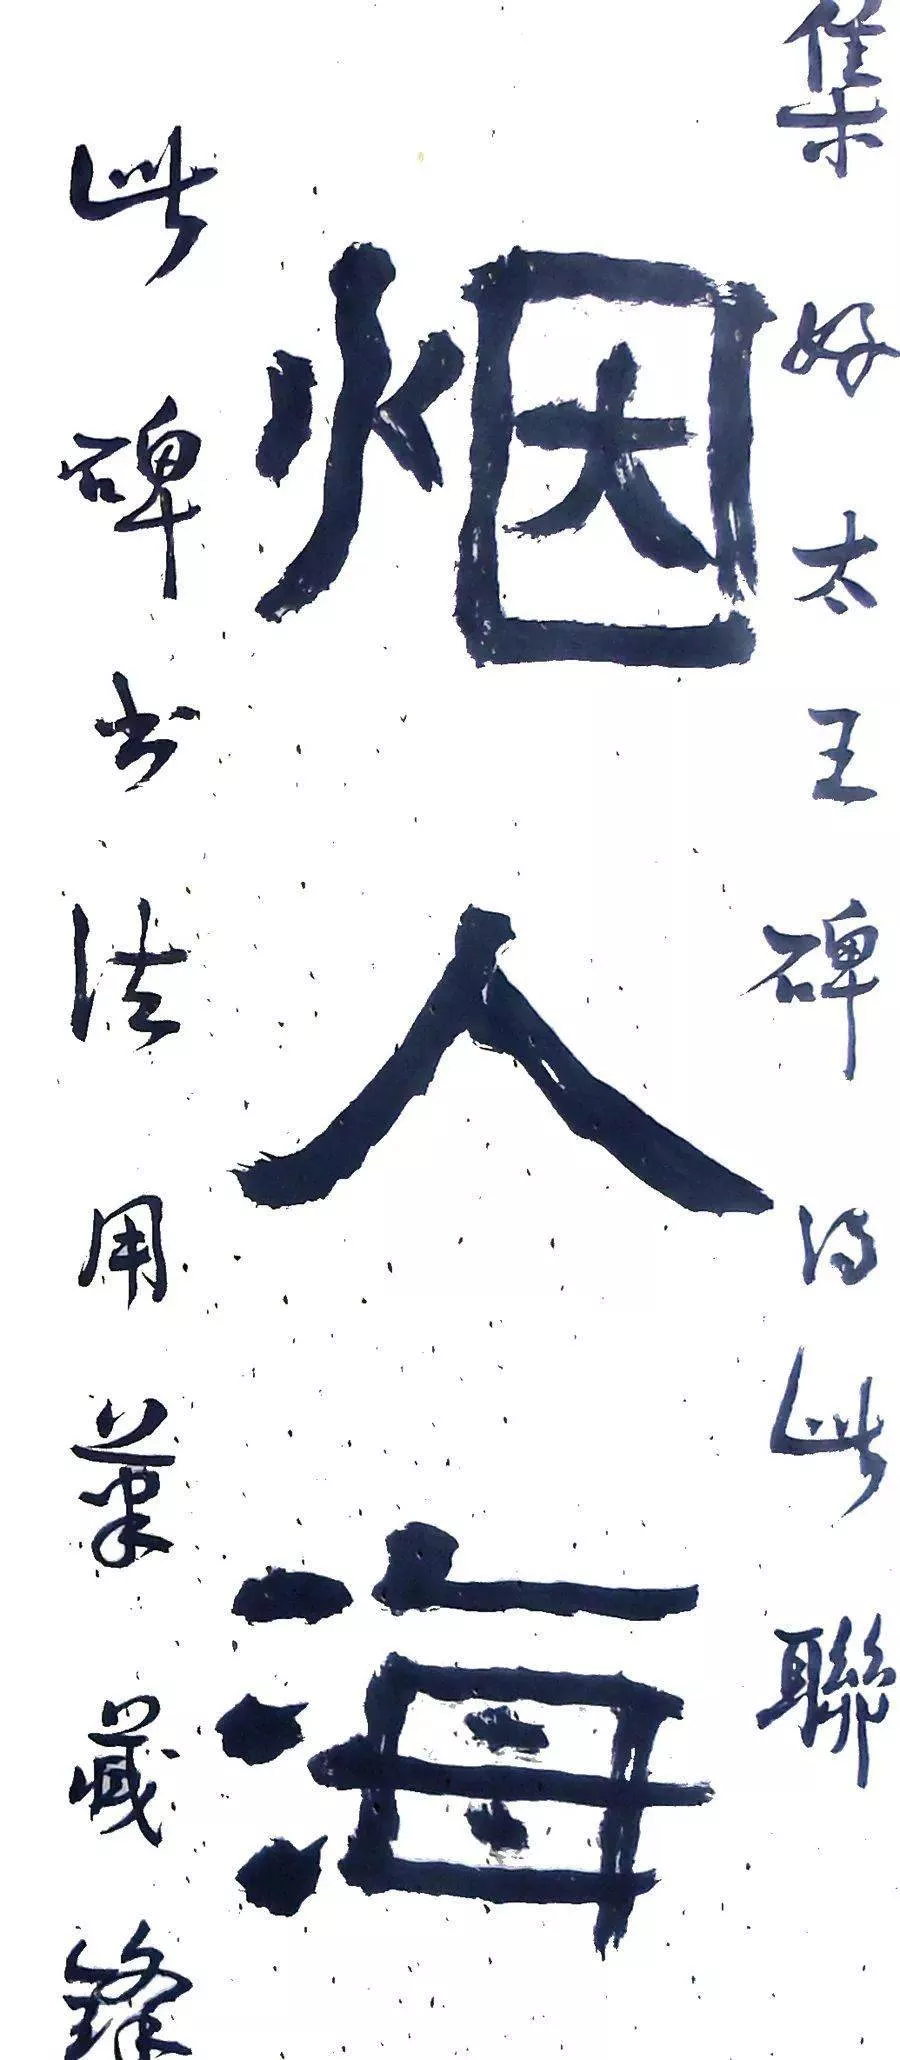 集好太王碑得此聯
烟人海
此碑书法用笔藏鋒